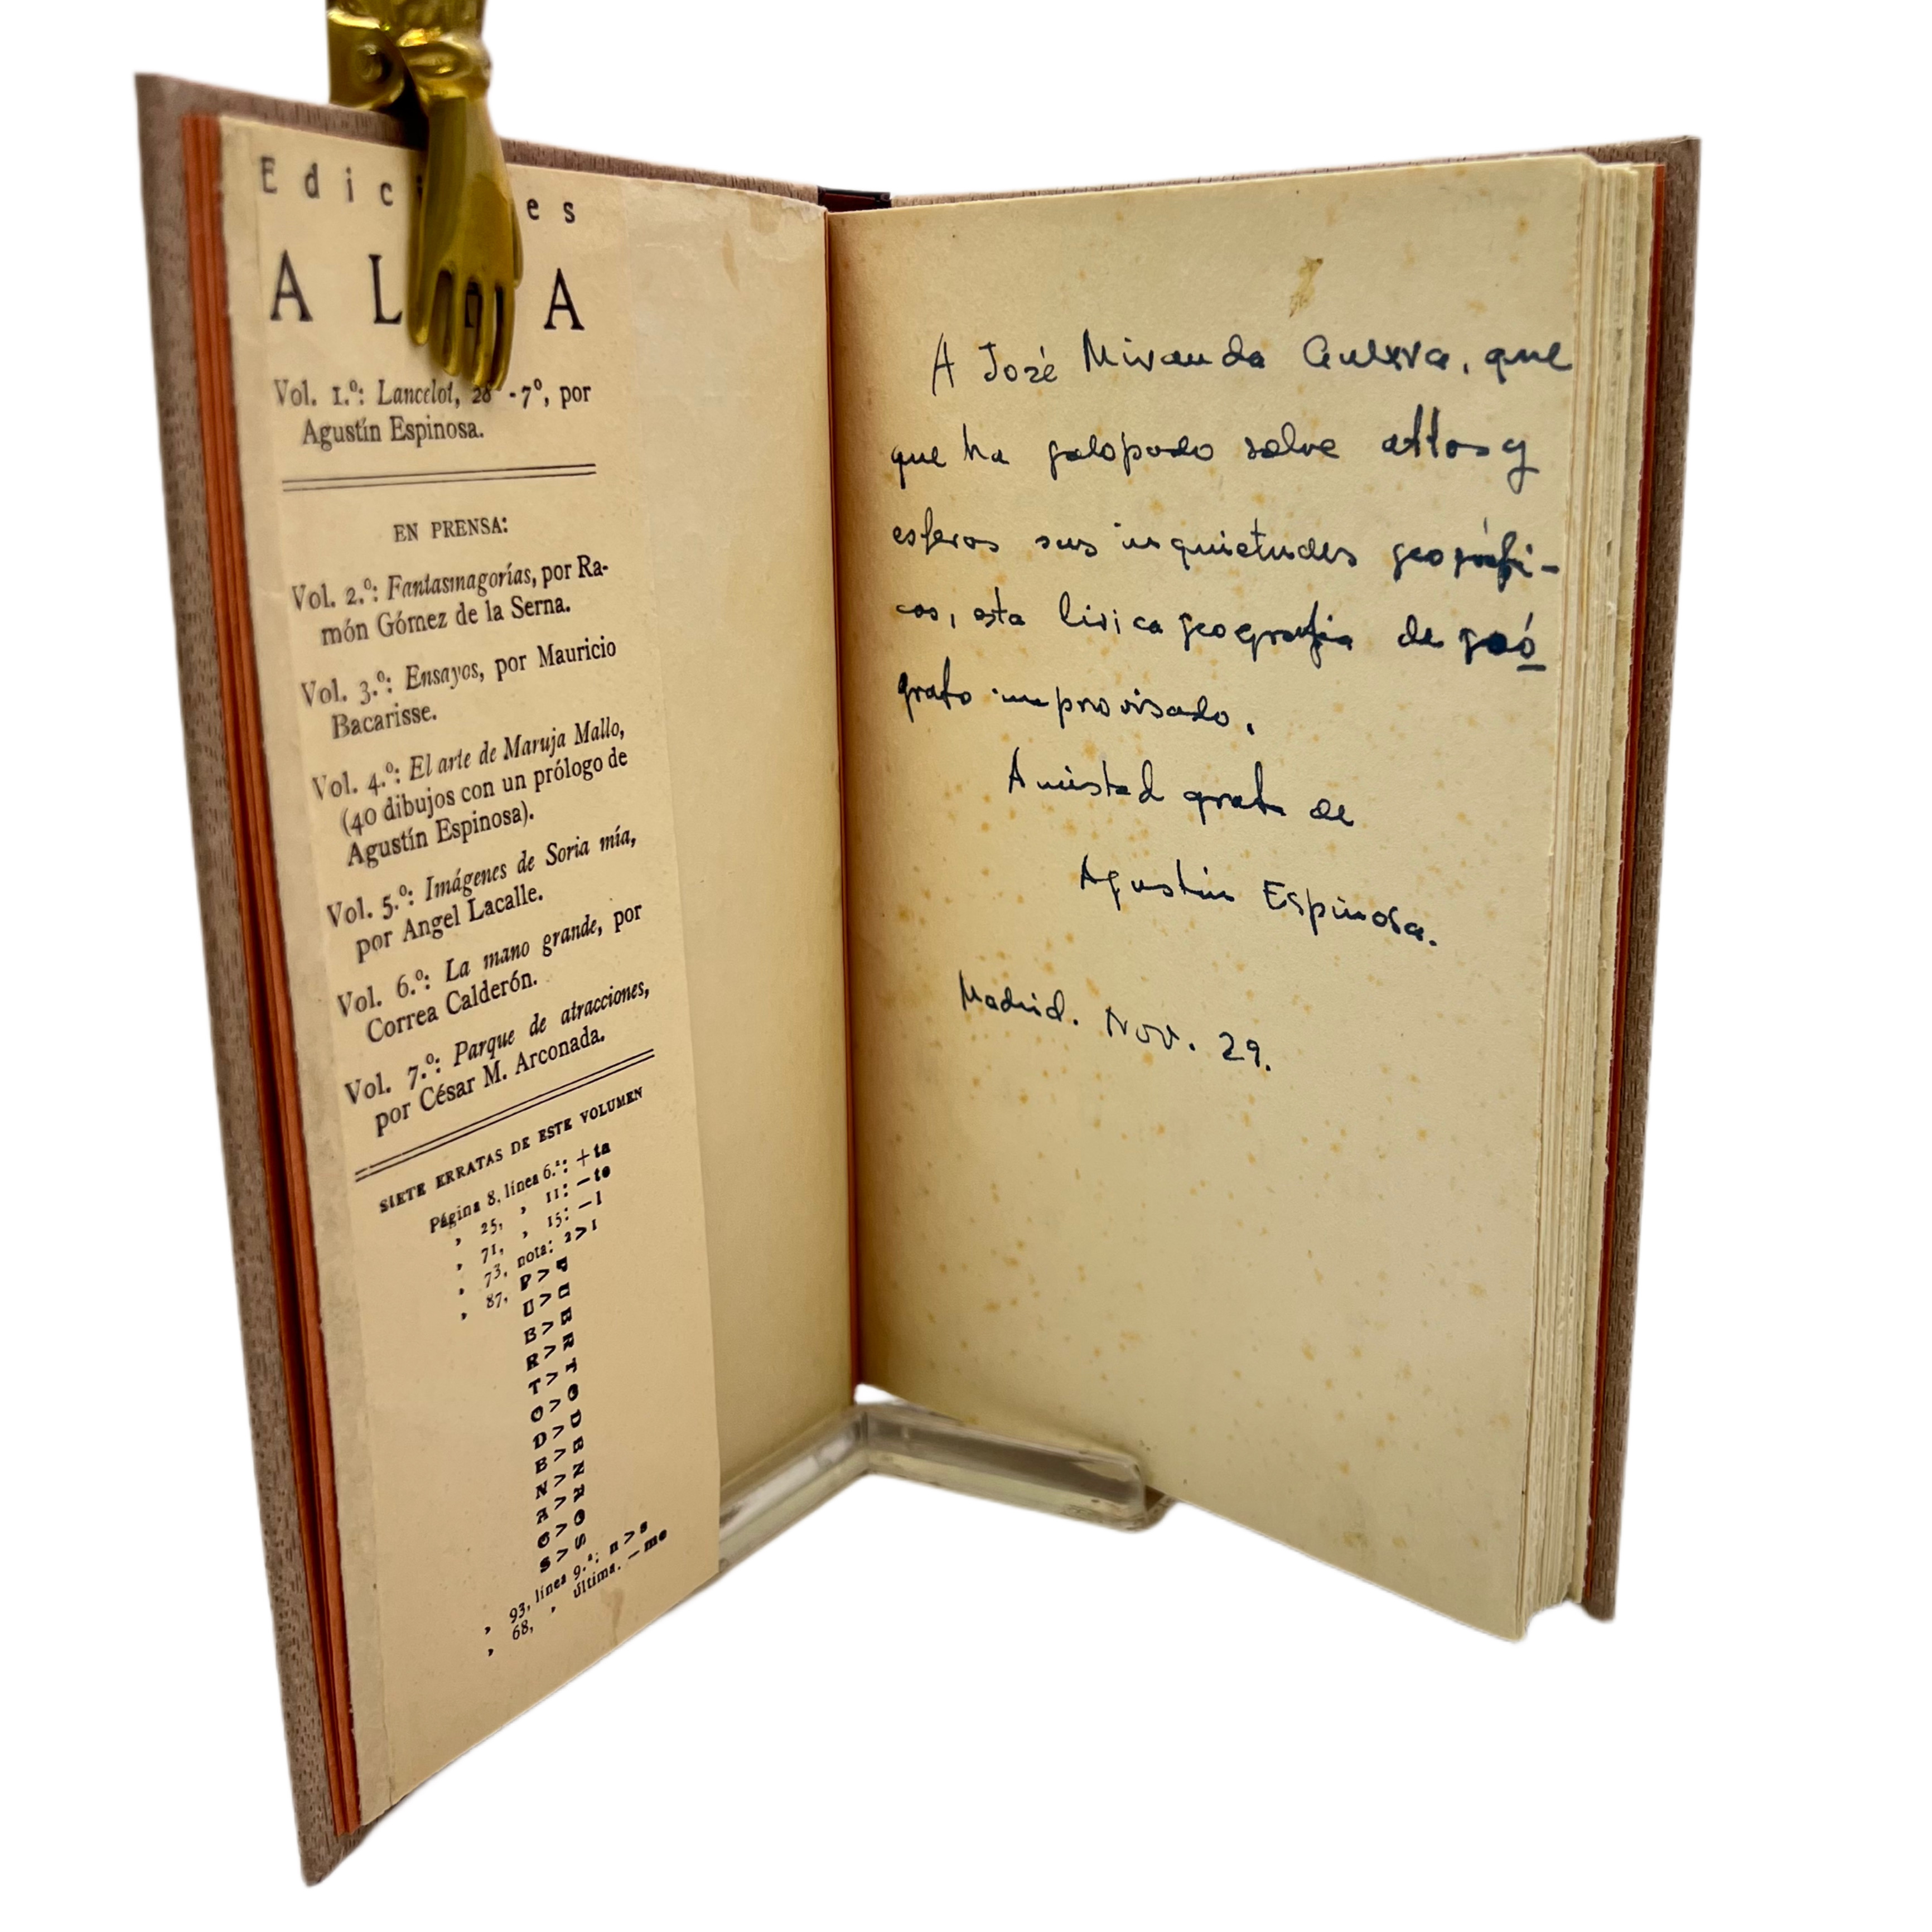 Edic es
A L A
Vol. 1.º: Lancelot, 28º-7º, por
Agustín Espinosa.
EN PRENSA:
Vol. 2.º: Fantasmagorías, por Ra-
món Gómez de la Serna.
Vol. 3.º: Ensayos, por Mauricio
Bacarisse.
Vol. 4.º: El arte de Maruja Mallo,
(40 dibujos con un prólogo de
Agustín Espinosa).
Vol. 5.º: Imágenes de Soria mía,
por Angel Lacalle.
Vol. 6.º: La mano grande, por
Correa Calderón.
Vol. 7.º: Parque de atracciones,
por César M. Arconada.
SIETE ERRATAS DE ESTE VOLUMEN
Página 8, línea 6.ª: +ta
» 25, » 11: —te
» 71, » 15: —l
» 73, nota: 2>1
» 87, P>P
U>U
E>E
R>R
T>T
O>O
D>D
E>E
N>N
A>R
O>O
S>S
» 93, línea 9.ª: n>s
» 68, » última. —me
A José Miranda Guerra, que
que ha galopado sobre atlas y
esferas sus inquietudes geográfi-
cas, esta lírica geografía de geó
grafo improvisado.
Amistad grata de
Agustín Espinosa.
Madrid. Nov. 29.